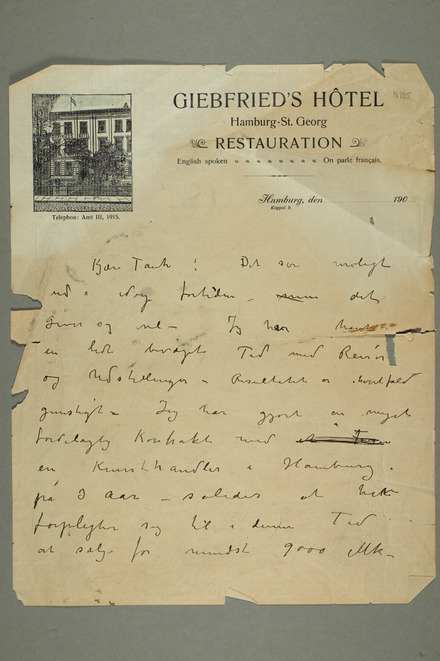 N 725
GIEBFRIED'S HÔTEL
Hamburg-St. Georg
RESTAURATION
English spoken On parle français.
Telephon: Amt III, 1915.
Hamburg, den 190
Koppel 8.
Kjære Tank! Det ser uroligt
ud i Norge fortiden – det
Gud og vel – Jeg har
en lidt bevæget Tid med Reiser
og Udstillinger – Resultatet er ihvertfald
gunstigt – Jeg har gjort en meget
fordelagtig Kontrakt med
en Kunsthandler i Hamburg.
på 3 Aar – således at han
forpligter sig til i denne Tid
at sælge for mindst 9000 Mk –